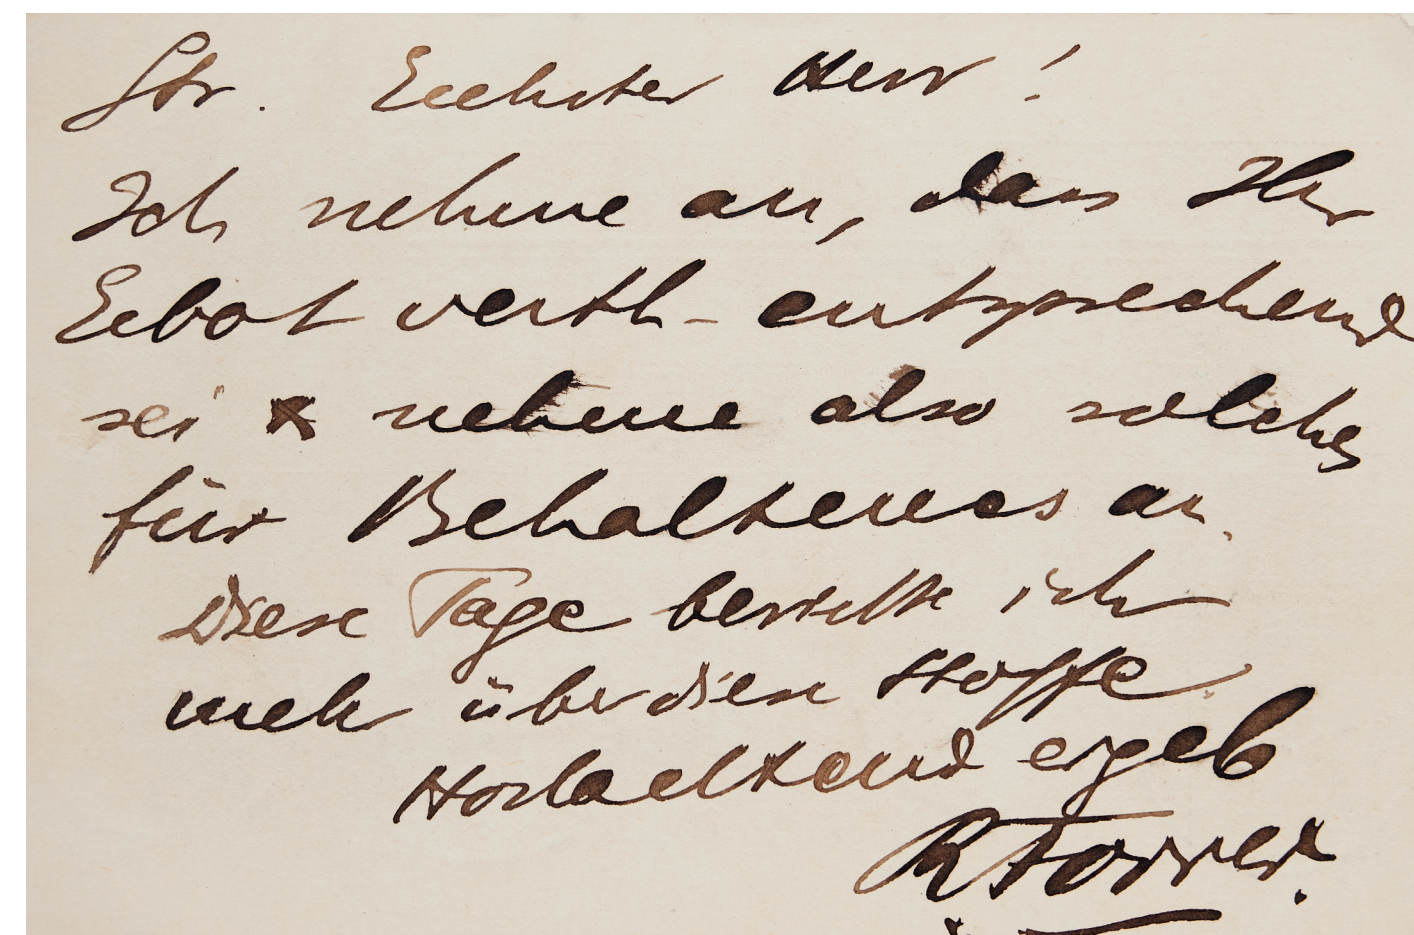 Str. Geehrter Herr!
Ich nehme an, dass Ihr
Gebot werth-entsprechend
sei nehme also solches
für Behaltenes an.
Diese Tage berichte ich
mehr über diese Stoffe.
Hochachtend ergeb
R Forrer.